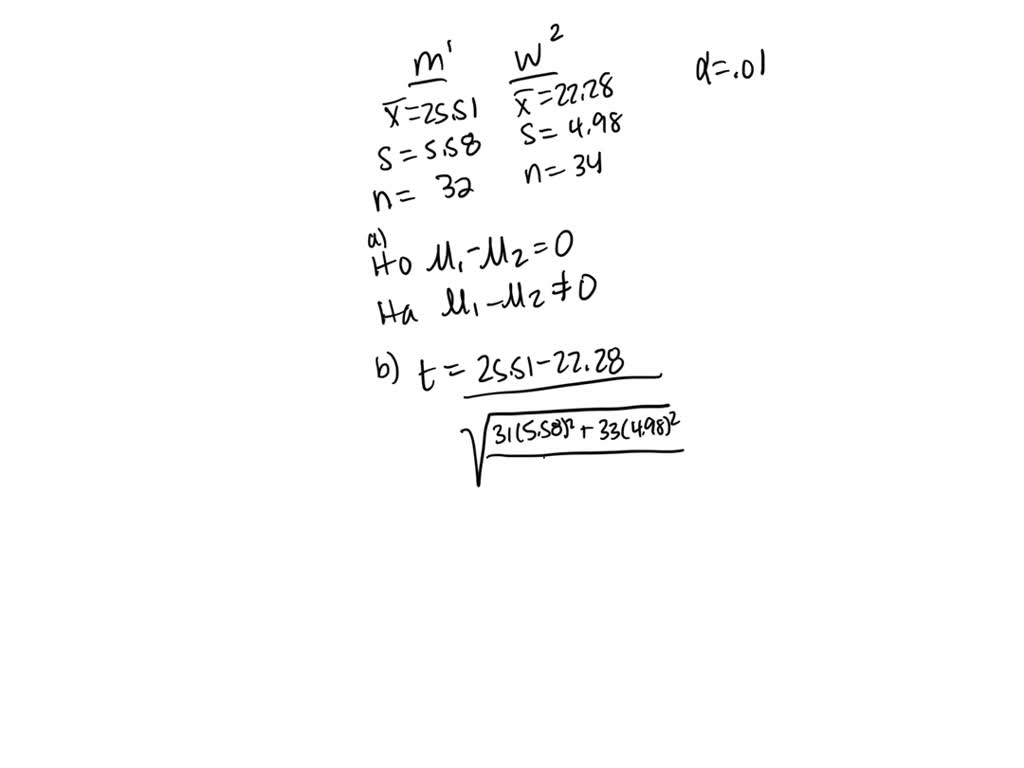 m¹ W² α=.01
x̄=25.51 x̄=22.28
s=5.58 s=4.98
n=32 n=34
a)
Ho μ₁-μ₂=0
Ha μ₁-μ₂≠0
b) t = 25.51-22.28
√31(5.58)²+33(4.98)²